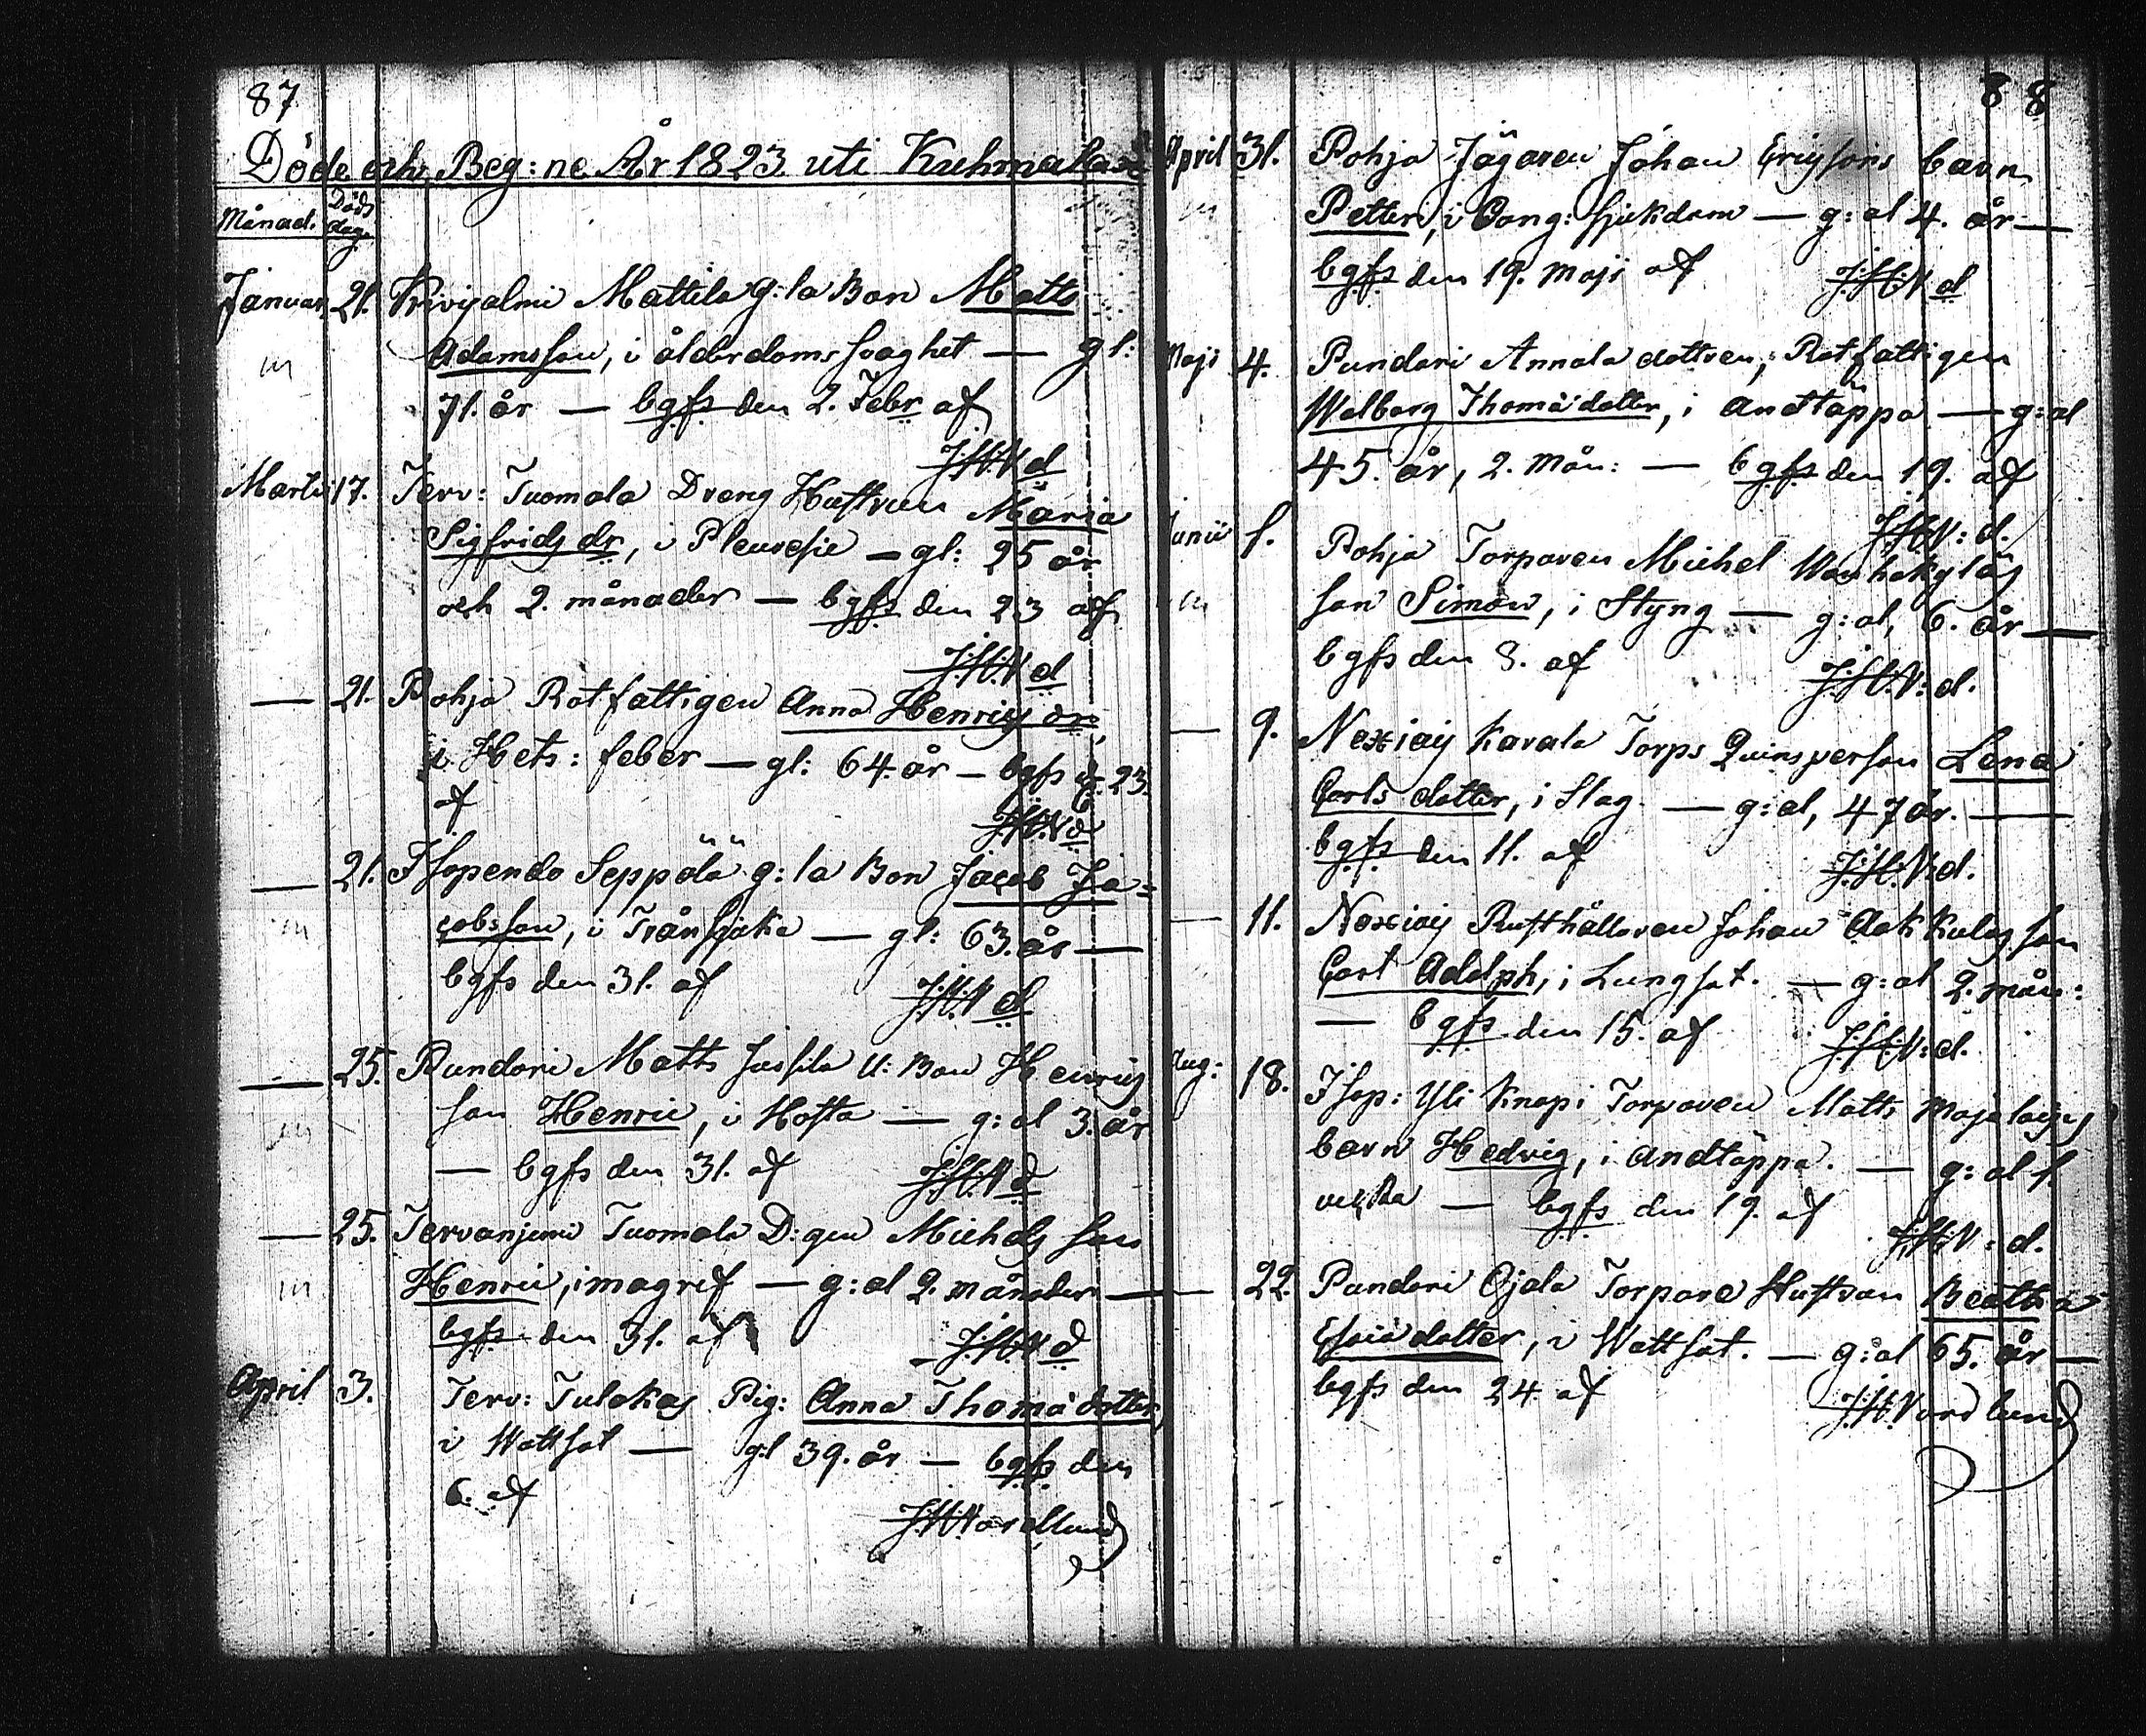 87
Döde och Beg:ne År 1823 uti Kuhmalax
Månad. Döds dag.
Januar. 21. Krivijalmi Mattila g:la Bon Matts
Adamsson, i ålderdoms svaghet — gl:
71. år — bgfs den 2. Febr af
J:H:N d
Martii 17. Terv: Tuomala Dreng Hustrun Maria
Sigfrids dr, i Pleuresie — gl: 25 år
och 2. månader — bgfs den 23 af
J:H:N d
— 21. Pohja Rotfattigen Anna Henrics dr,
i Hets: feber — gl: 64. år — bgfs d. 23.
af
J:H:N d
— 21. Isopendo Seppälä g:la Bon Jacob Ja=
cobsson, i Trånsjuka — gl: 63. år —
bgfs den 31. af J:H:N d
— 25. Pundari Matts Jussila U: Bon Henrics
son Henric, i Hosta — g:al 3. år
— bgfs den 31. af J:H:N d
— 25. Tervanjemi Tuomala D:gen Michels son
Henric, i magref — g:al 2. månader —
bgfs den 31. af J:H:N d
April 3. Terv: Tulokas Pig: Anna Thomædotter,
i Wattsot — gl 39. år — bgfs den
6. af
J:H:Nordlund
88
April 31. Pohja Jägaren Johan Ericssons barn
Petter, i Bong: sjukdom — g:al 4. år —
bgfs den 19. Maji af J:H:N d
Maji 4. Pundari Annala dottren, Rotfattigen
Walborg Thomædotter, i Andtäppa — g:al
45. år, 2. mån: — bgfs den 19. af
J:H:N: d.
Junii 1. Pohja Torparen Michel Wanhakyläs
son Simon, i Styng — g:al, 6. år —
bgfs den 8. af J:H:N: d.
— 9. Noxiais Kavala Torps Quinsperson Lena
Carls dotter, i Slag. — g:al, 47 år. —
bgfs den 11. af J:H:N: d.
— 11. Noxiais Rusthållaren Johan Aakkulas son
Carl Adolph, i Lungsot. — g:al 2. mån:
— bgfs den 15. af J:H:N: d.
Aug: 18. Isop: Yli Knapi Torparen Matts
barn Hedvig, i andtäppa. — g:al 1.
vecka — bgfs den 19. af
J:H:N: d.
22. Pundari Ojala Torpare Hustrun Beatha
Esaiædotter, i Wattsot. — g:al 65. år —
bgfs den 24 af J:H:Nordlund